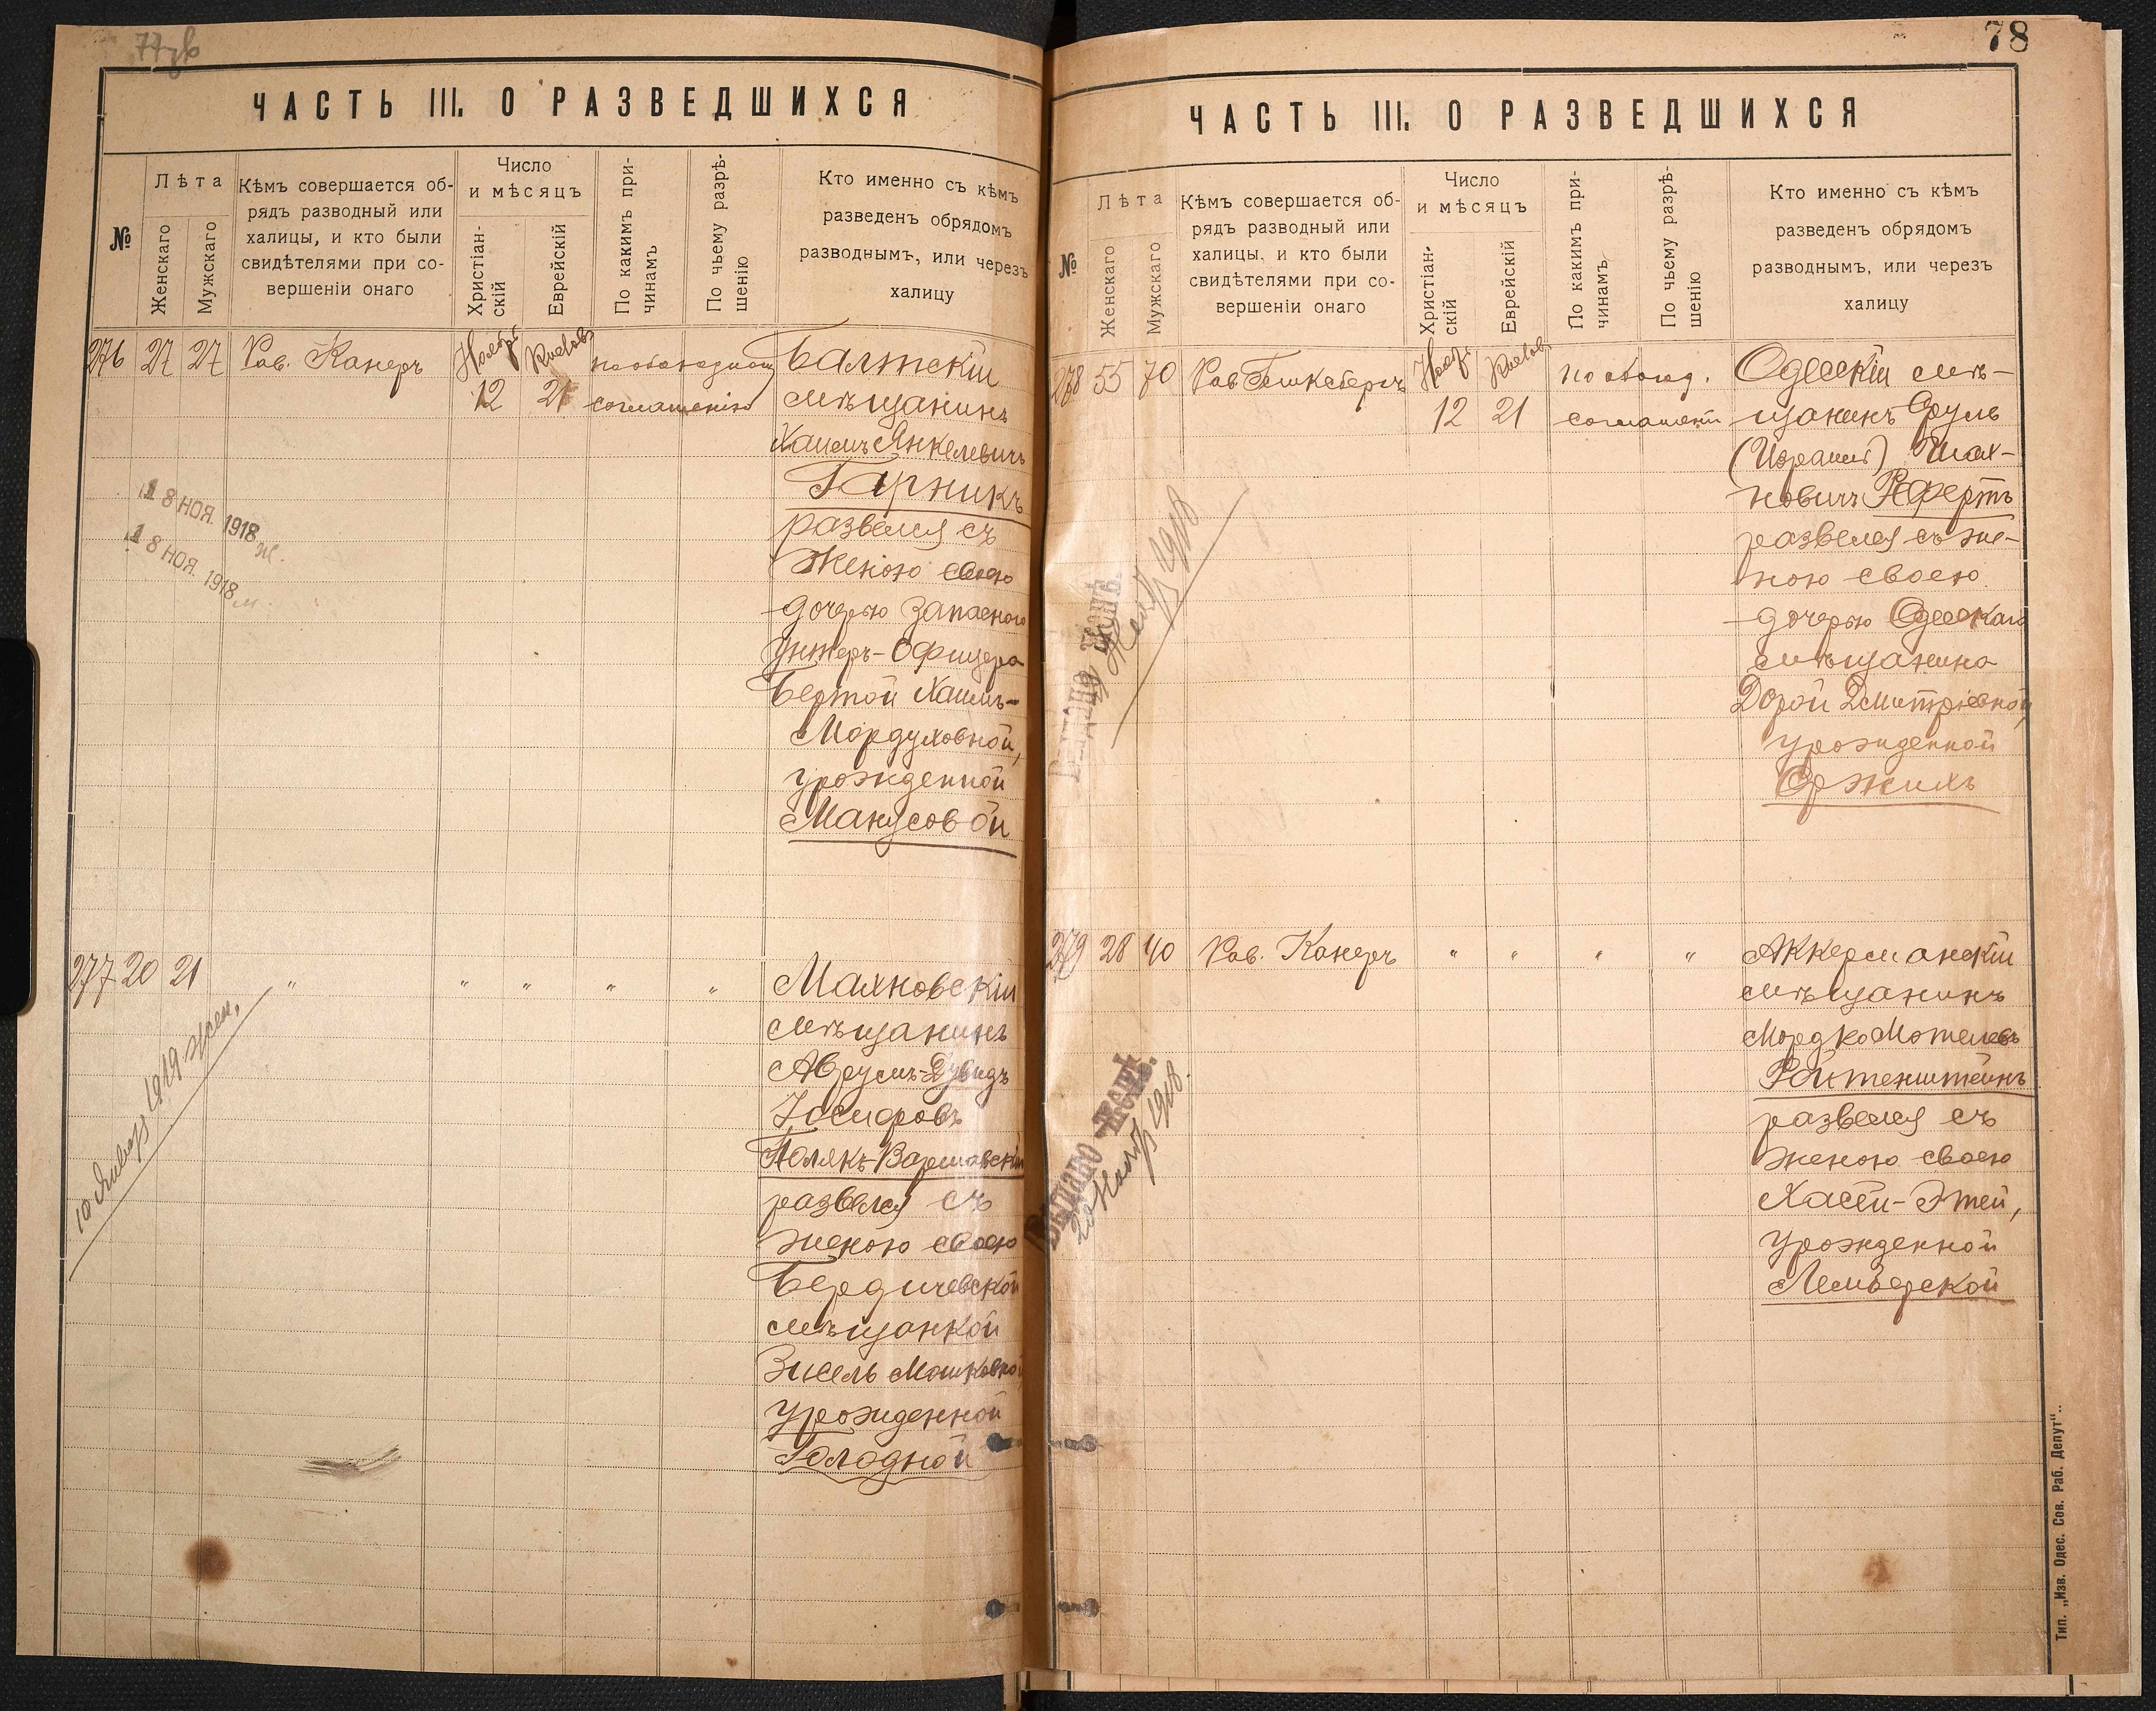 ЧАСТЬ III. О РАЗВЕДШИХСЯ
№
Лѣта
Женскаго
Мужскаго
Кѣмъ совершается об-
рядъ разводный или
халицы, и кто были
свидѣтелями при со-
вершеніи онаго
Число
и мѣсяцъ
Христіан-
скій
Еврейскій
По какимъ при-
чинамъ
По чьему разрѣ-
шенію
Кто именно съ кѣмъ
разведенъ обрядомъ
разводнымъ, или черезъ
халицу
276 27 27 Рав. Канеръ
12 21 соглашенію
Балтскій
мѣщанинъ
Хаимъ Янкелевичъ
Гарникъ
развелся съ
женою своею
дочерью запаснаго
унтеръ-офицера
Бертой Хаимъ-
Мордуховной,
урожденной
Манусовой
18 НОЯ. 1918 ж.
18 НОЯ. 1918 м.
277 20 21 " " " " "
Махновскій
мѣщанинъ
Аврумъ-Дувидъ
Іосифовъ
Полякъ-Варшавскій
развелся съ
женою своею
Бердичевской
мѣщанкой
Зисель Мошковной
урожденной
Голодной
10 Января 1919 жен.
78
ЧАСТЬ III. О РАЗВЕДШИХСЯ
№
Лѣта
Женскаго
Мужскаго
Кѣмъ совершается об-
рядъ разводный или
халицы, и кто были
свидѣтелями при со-
вершеніи онаго
Число
и мѣсяцъ
Христіан-
скій
Еврейскій
По какимъ при-
чинамъ
По чьему разрѣ-
шенію
Кто именно съ кѣмъ
разведенъ обрядомъ
разводнымъ, или черезъ
халицу
278 55 70 Рав.
12 21
Одесскій мѣ-
щанинъ Сруль
(Израиль) Шах-
новичъ Рефертъ
развелся съ же-
ною своею
дочерью Одесскаго
мѣщанина
Дорой Дмитріевной,
урожденной
279 28 40 Рав. Канеръ " " " "
Аккерманскій
мѣщанинъ
Мордко Мотелевъ
Ройтенштейнъ
развелся съ
женою своею
Хасей-Этей,
урожденной
Лемберской
Выдано
20 Нояб 1918.
Тип. „Изв. Одес. Сов. Раб. Депут"..